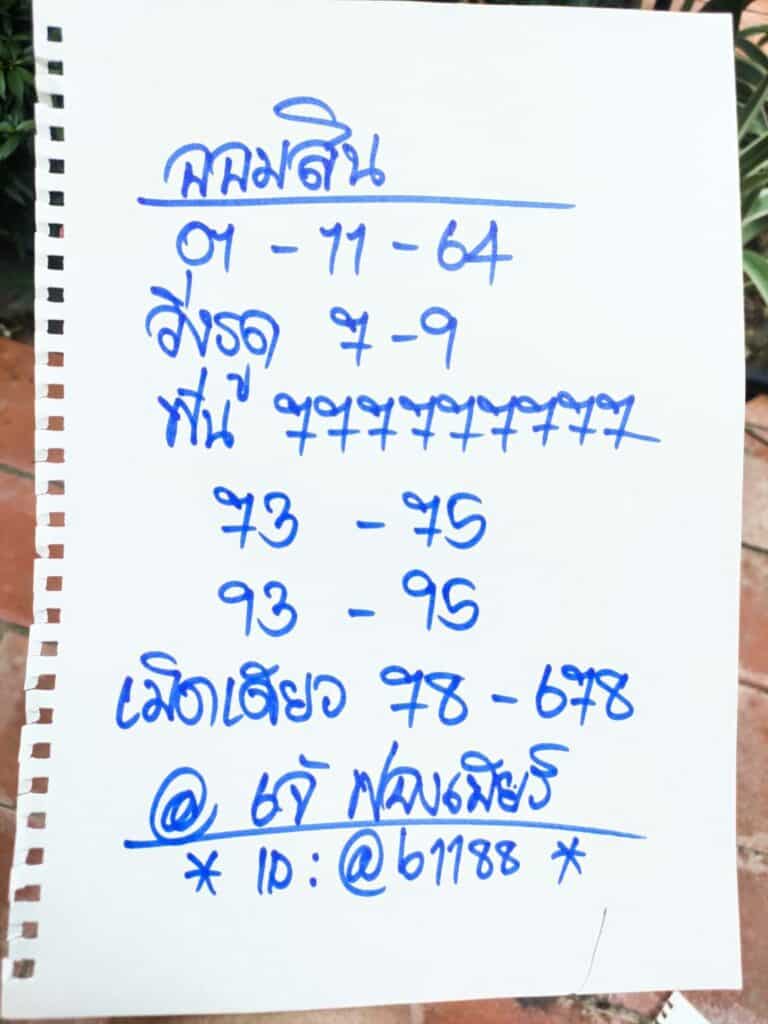 ออมสิน
01 - 11 - 64
วิ่งรูด 7 - 9
ฟันู 777777777
73 - 75
93 - 95
เม็ดเดียว 78 - 678
@ เจ๊ ฟองเบียร์
* ID : @b1188 *